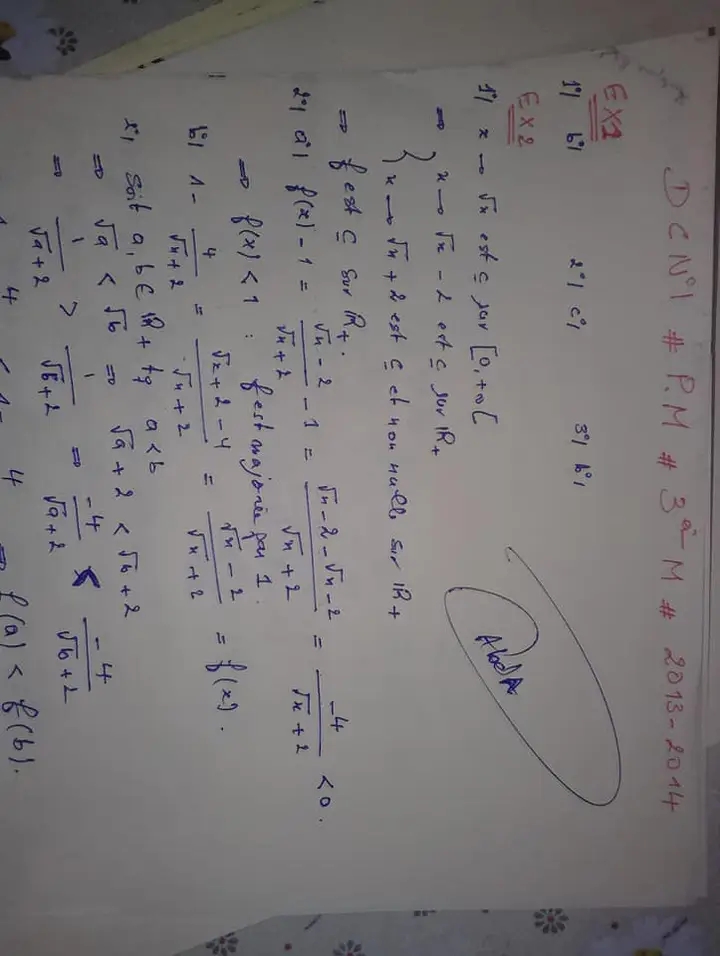 DC N°1 # P.M # 3ª M # 2013-2014
EX1
1°/ b°/ 2°/ c°/ 3°/ b°/
EX2
1°/ x → √x est C sur [0,+∞[
⇒ { x → √x - 2 est C sur IR+
x → √x + 2 est C et non nulle sur IR+
⇒ f est C sur IR+.
2°/ a°/ f(x) - 1 = (√x - 2)/(√x + 2) - 1 = (√x - 2 - √x - 2)/(√x + 2) = -4/(√x + 2) < 0.
⇒ f(x) < 1 : f est majorée par 1.
b°/ 1 - 4/(√x + 2) = (√x + 2 - 4)/(√x + 2) = (√x - 2)/(√x + 2) = f(x).
2°/ Soit a, b ∈ IR+ tq a < b
⇒ √a < √b ⇒ √a + 2 < √b + 2
⇒ 1/(√a + 2) > 1/(√b + 2) ⇒ -4/(√a + 2) < -4/(√b + 2)
4 < 1 - 4 ⇒ f(a) < f(b).